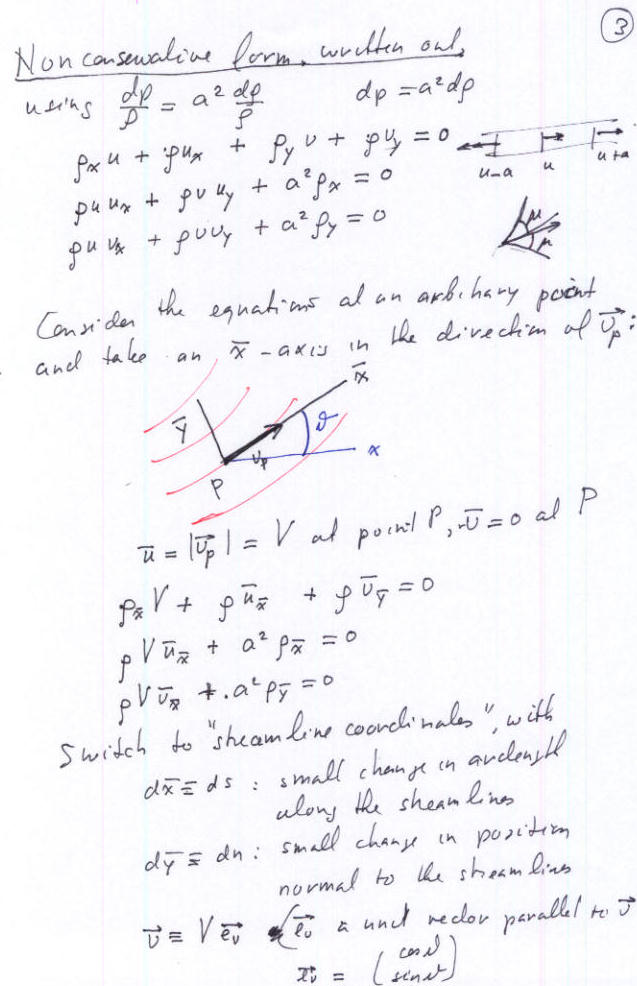 ③
Nonconservative form, written out,
using dp/ρ = a² dρ/ρ    dp = a²dρ
ρₓu + ρuₓ + ρ_y v + ρv_y = 0
ρuuₓ + ρvu_y + a²ρₓ = 0
ρuvₓ + ρvv_y + a²ρ_y = 0
u-a u u+a
μ
μ
Consider the equations at an arbitrary point
and take an x̄-axis in the direction of v⃗_p:
ȳ x̄
ϑ
v_p x
P
ū = |v⃗_p| = V at point P, v̄ = 0 at P
ρ_x̄ V + ρ ū_x̄ + ρ v̄_ȳ = 0
ρV ū_x̄ + a² ρ_x̄ = 0
ρV v̄_x̄ + a² ρ_ȳ = 0
Switch to "streamline coordinates", with
dx̄ ≡ ds : small change in arclength
along the streamlines
dȳ ≡ dn : small change in position
normal to the streamlines
v⃗ ≡ V e⃗_v e⃗_v a unit vector parallel to v⃗
e⃗_v = (cosϑ
sinϑ)